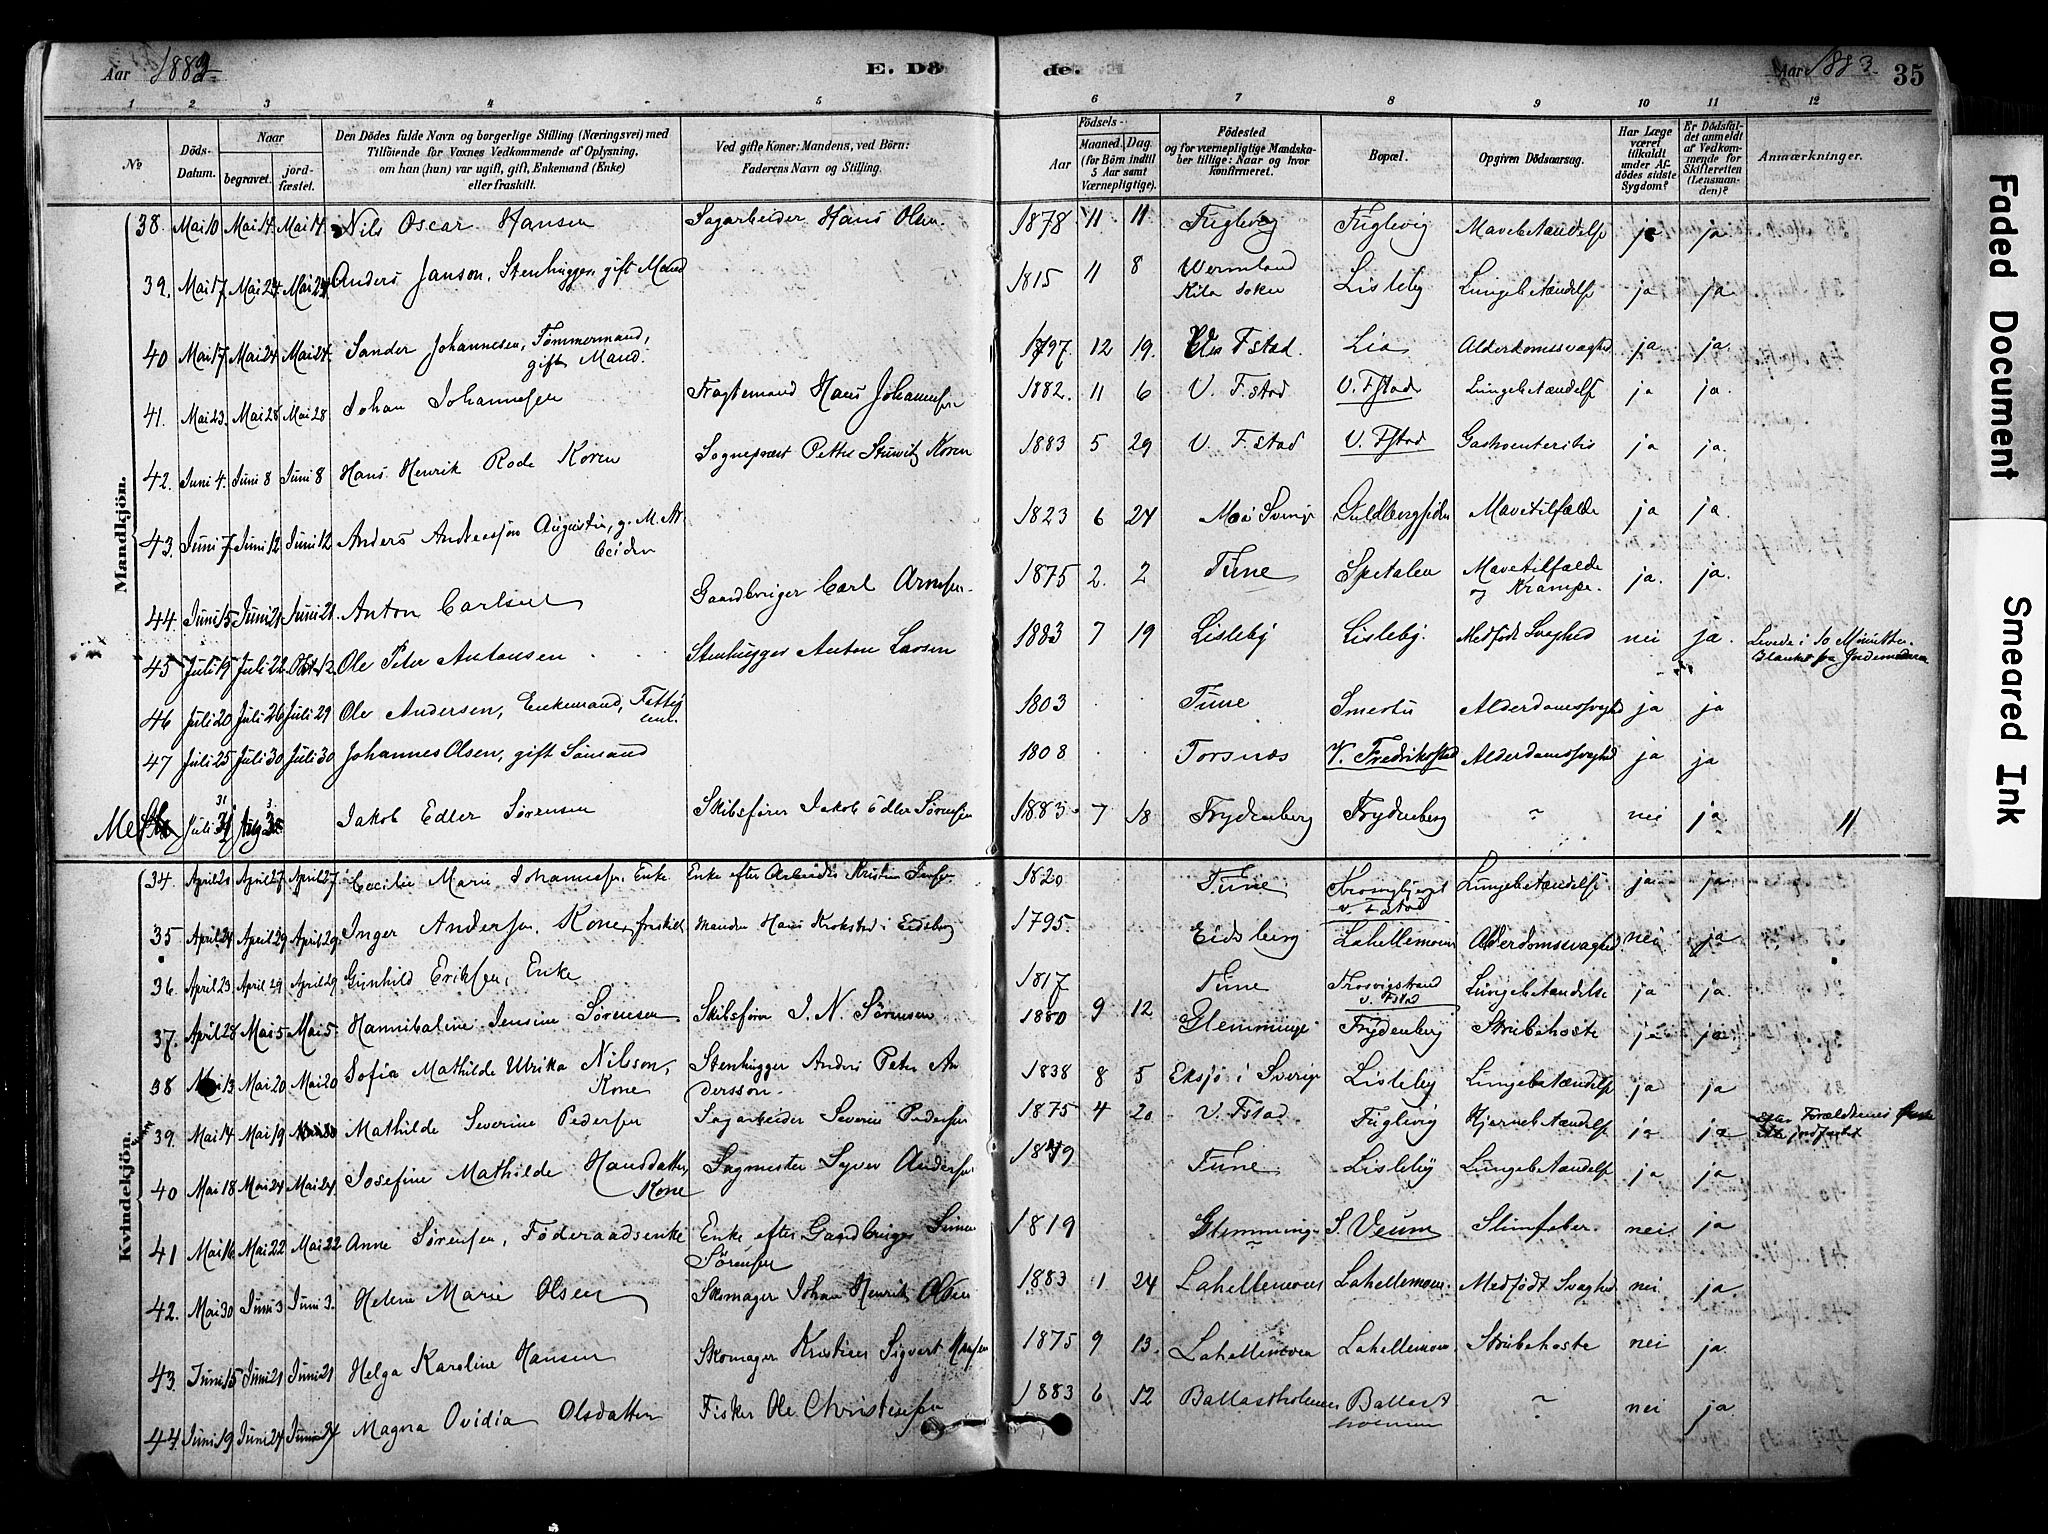 Aar 1883
E. Dö
de.
Aar 1883
35
1 2 3 4 5 6 7 8 9 10 11 12
No
Döds-Datum.
Naar
begravet.
jordfæstet.
Den Dödes fulde Navn og borgerlige Stilling (Næringsvei) med
Tilföiende for Voxnes Vedkommende af Oplysning,
om han (hun) var ugift, gift, Enkemand (Enke)
eller fraskilt.
Ved gifte Koner: Mandens, ved Börn:
Faderens Navn og Stilling.
Födsels-
Aar
Maaned. Dag.
(for Börn indtil
5 Aar samt
Værnepligtige).
Födested
og for værnepligtige Mandskaber
tillige: Naar og hvor
konfirmeret.
Bopæl.
Opgiven Dödsaarsag.
Har Læge
været
tilkaldt
under Afdödes
sidste
Sygdom?
Er Dödsfaldet
anmeldt
af Vedkommende
for
Skifteretten
(Lensmanden)?
Anmærkninger.
Mandkjön.
38. Mai 10 Mai 14 Mai 14 Nils Oscar Hansen Sagarbeider Hans Olsen 1878 11 11 Fuglevig Fuglevig Mavebetændelse ja ja
39. Mai 17 Mai 24 Mai 24 Anders Janson, Stenhugger, gift Mand 1815 11 8 Wermland Kila Soken Lisleby Lungebetændelse ja ja
40 Mai 17 Mai 24 Mai 24 Sander Johannesen, Tømmermand, gift Mand. 1797 12 19. F.stad. Lia Alderdomssvaghed ja ja.
41. Mai 23. Mai 28 Mai 28 Johan Johannesen Fragtemand Hans Johannesen 1882. 11 6 V. F.stad V. Fstad Lungebetændelse ja ja.
42. Juni 4. Juni 8 Juni 8 Hans Henrik Rode Koren Sogneprest Petter Stuwitz Koren 1883 5 29 V. F.stad V. Fstad Gastroenteritis ja ja.
43. Juni 7 Juni 12 Juni 12 Anders Andreasson Augustin, g. M. Arbeider 1823 6 24 Sverige Guldbergsiden Mavetilfælde ja ja.
44. Juni 15 Juni 21 Juni 21 Anton Carlsen Gaardbruger Carl Arnesen 1875 2. 2 Tune Spetalen Mavetilfælde og Krampe. ja. ja.
45 Juli 19 Juli 22 Okt 12 Ole Peter Antonsen Stenhugger Anton Larsen 1883 7 19 Lisleby Lisleby. Medfødt Svaghed nei ja. Levede i 10 Minutter. Blanket fra Jordemoderen
46 Juli 20 Juli 26 Juli 29 Ole Andersen, Enkemand, 1803 Tune Smertu Alderdomssvaghed ja ja
47 Juli 25 Juli 30 Juli 30 Johannes Olsen, gift Sømand 1808 Torsnæs V. Fredrikstad Alderdomssvaghed ja ja
Juli 31 Aug 3. Jakob Edler Sørensen Skibsfører Jakob Edler Sørensen 1883 7 18 Frydenberg Frydenberg ~ nei ja
Kvindekjön.
34. April 21 April 27 April 27 Cecilie Marie Johannesen Enke Enke efter Arbeider Kristian Jensen 1820 Tune v. Fstad Lungebetændelse. ja ja
35 April 24 April 29 April 29. Inger Andersen Kone, fraskilt Manden Hans Krokstad i Eidsberg 1795. Eidsberg Lahellemoen Alderdomssvaghed. nei ja
36. April 23. April 29 April 29 Gunhild Eriksen, Enke 1817 Tune Trosvigstrand v. Fstad Lungebetændelse ja ja
37. April 28 Mai 5 Mai 5. Hannibaline Jensine Sørensen Skibsfører J. N. Sørensen 1880 9 12 Glemminge Frydenberg Strubehoste ja ja
38 Mai 13 Mai 20 Mai 20 Sofia Mathilde Ulrika Nilsson, Kone Stenhugger Anders Peter Andersson. 1838 8 5 Eksjö i Sverige Lisleby Lungebetændelse ja ja
39. Mai 14 Mai 19 Mai 20 Mathilde Severine Pedersen Sagarbeider Severin Pedersen 1875 4 20 V. Fstad Fuglevig Hjernebetændelse ja ja efter Forældrenes jordfæstet
40 Mai 18 Mai 24 Mai 24 Josefine Mathilde Hansdatter, Kone Sagmester Syver Andersen 1849 Tune Lisleby Lungebetændelse ja ja
41 Mai 16 Mai 22 Mai 22 Anne Sørensen, Föderaadsenke Enke efter Gaardbruger Simen Sørensen 1819 Glemminge S. Veum Slimfeber. nei ja
42. Mai 30 Juni 3 Juni 3. Helene Marie Olsen Skomager Johan Henrik Olsen 1883 1 24 Lahellemoen Lahellemoen. Medfødt Svaghed nei ja.
43. Juni 15 Juni 21 Juni 21 Helga Karoline Hansen Skomager Kristian Sigvart Hansen 1875 9 13. Lahellemoen Lahellemoen. Strubehoste nei ja.
44. Juni 19 Juni 24 Juni 24 Magna Ovidia Olsdatter Fisker Ole Christensen 1883 6 12 Ballastholmen Ballastholmen ~ nei ja
Faded Document
Smeared Ink